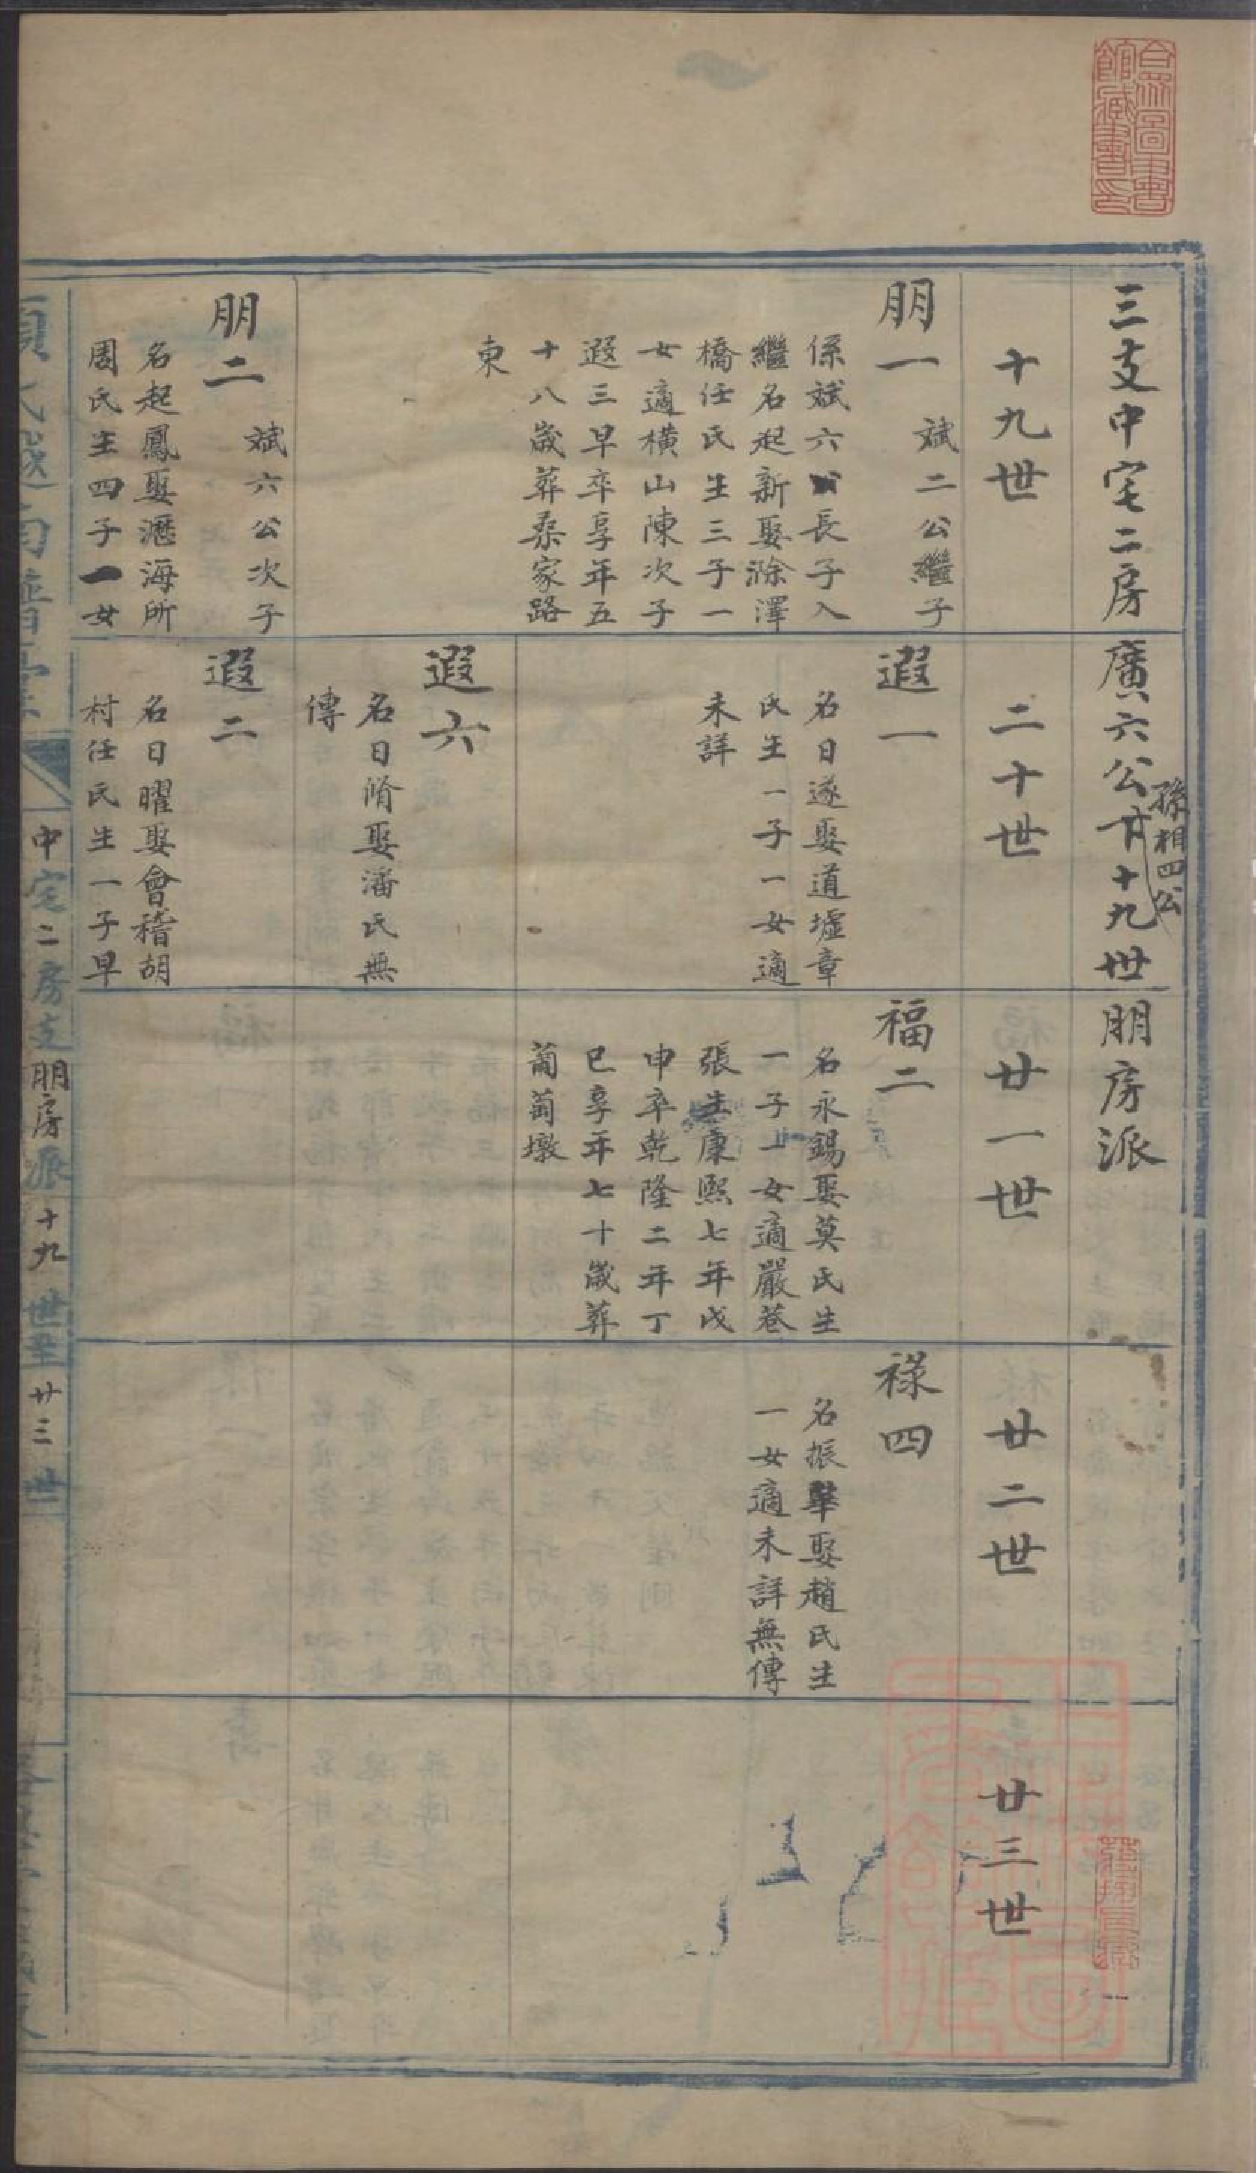 合眾圖書館藏書印
三支中宅二房廣六公下十九世朋房派
孫相四公
十九世
二十世
廿一世
廿二世
廿三世
朋一
斌二公繼子
係斌六公長子入
繼名起新娶滁澤
橋任氏生三子一
女適橫山陳次子
遐三早卒享年五
十八歲葬桑家路
東
遐一
名日遂娶道墟章
氏生一子一女適
未詳
福二
名永錫娶莫氏生
一子一女適嚴巷
張生康熙七年戊
申卒乾隆二年丁
巳享年七十歲葬
葡萄墩
祿四
名振華娶趙氏生
一女適未詳無傳
遐六
名日脩娶潘氏無
傳
朋二
斌六公次子
名起鳳娶瀝海所
周氏生四子一女
遐二
名日曜娶會稽胡
村任氏生一子早
中宅二房支朋房派十九世至廿三世